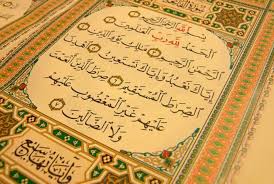 بِسْمِ اللَّهِ الرَّحْمَٰنِ الرَّحِيمِ
الْحَمْدُ لِلَّهِ رَبِّ الْعَٰلَمِينَ
الرَّحْمَٰنِ الرَّحِيمِ مَٰلِكِ يَوْمِ الدِّينِ
إِيَّاكَ نَعْبُدُ وَإِيَّاكَ نَسْتَعِينُ اهْدِنَا
الصِّرَٰطَ الْمُسْتَقِيمَ صِرَٰطَ الَّذِينَ أَنْعَمْتَ
عَلَيْهِمْ غَيْرِ الْمَغْضُوبِ عَلَيْهِمْ
وَلَا الضَّالِّينَ